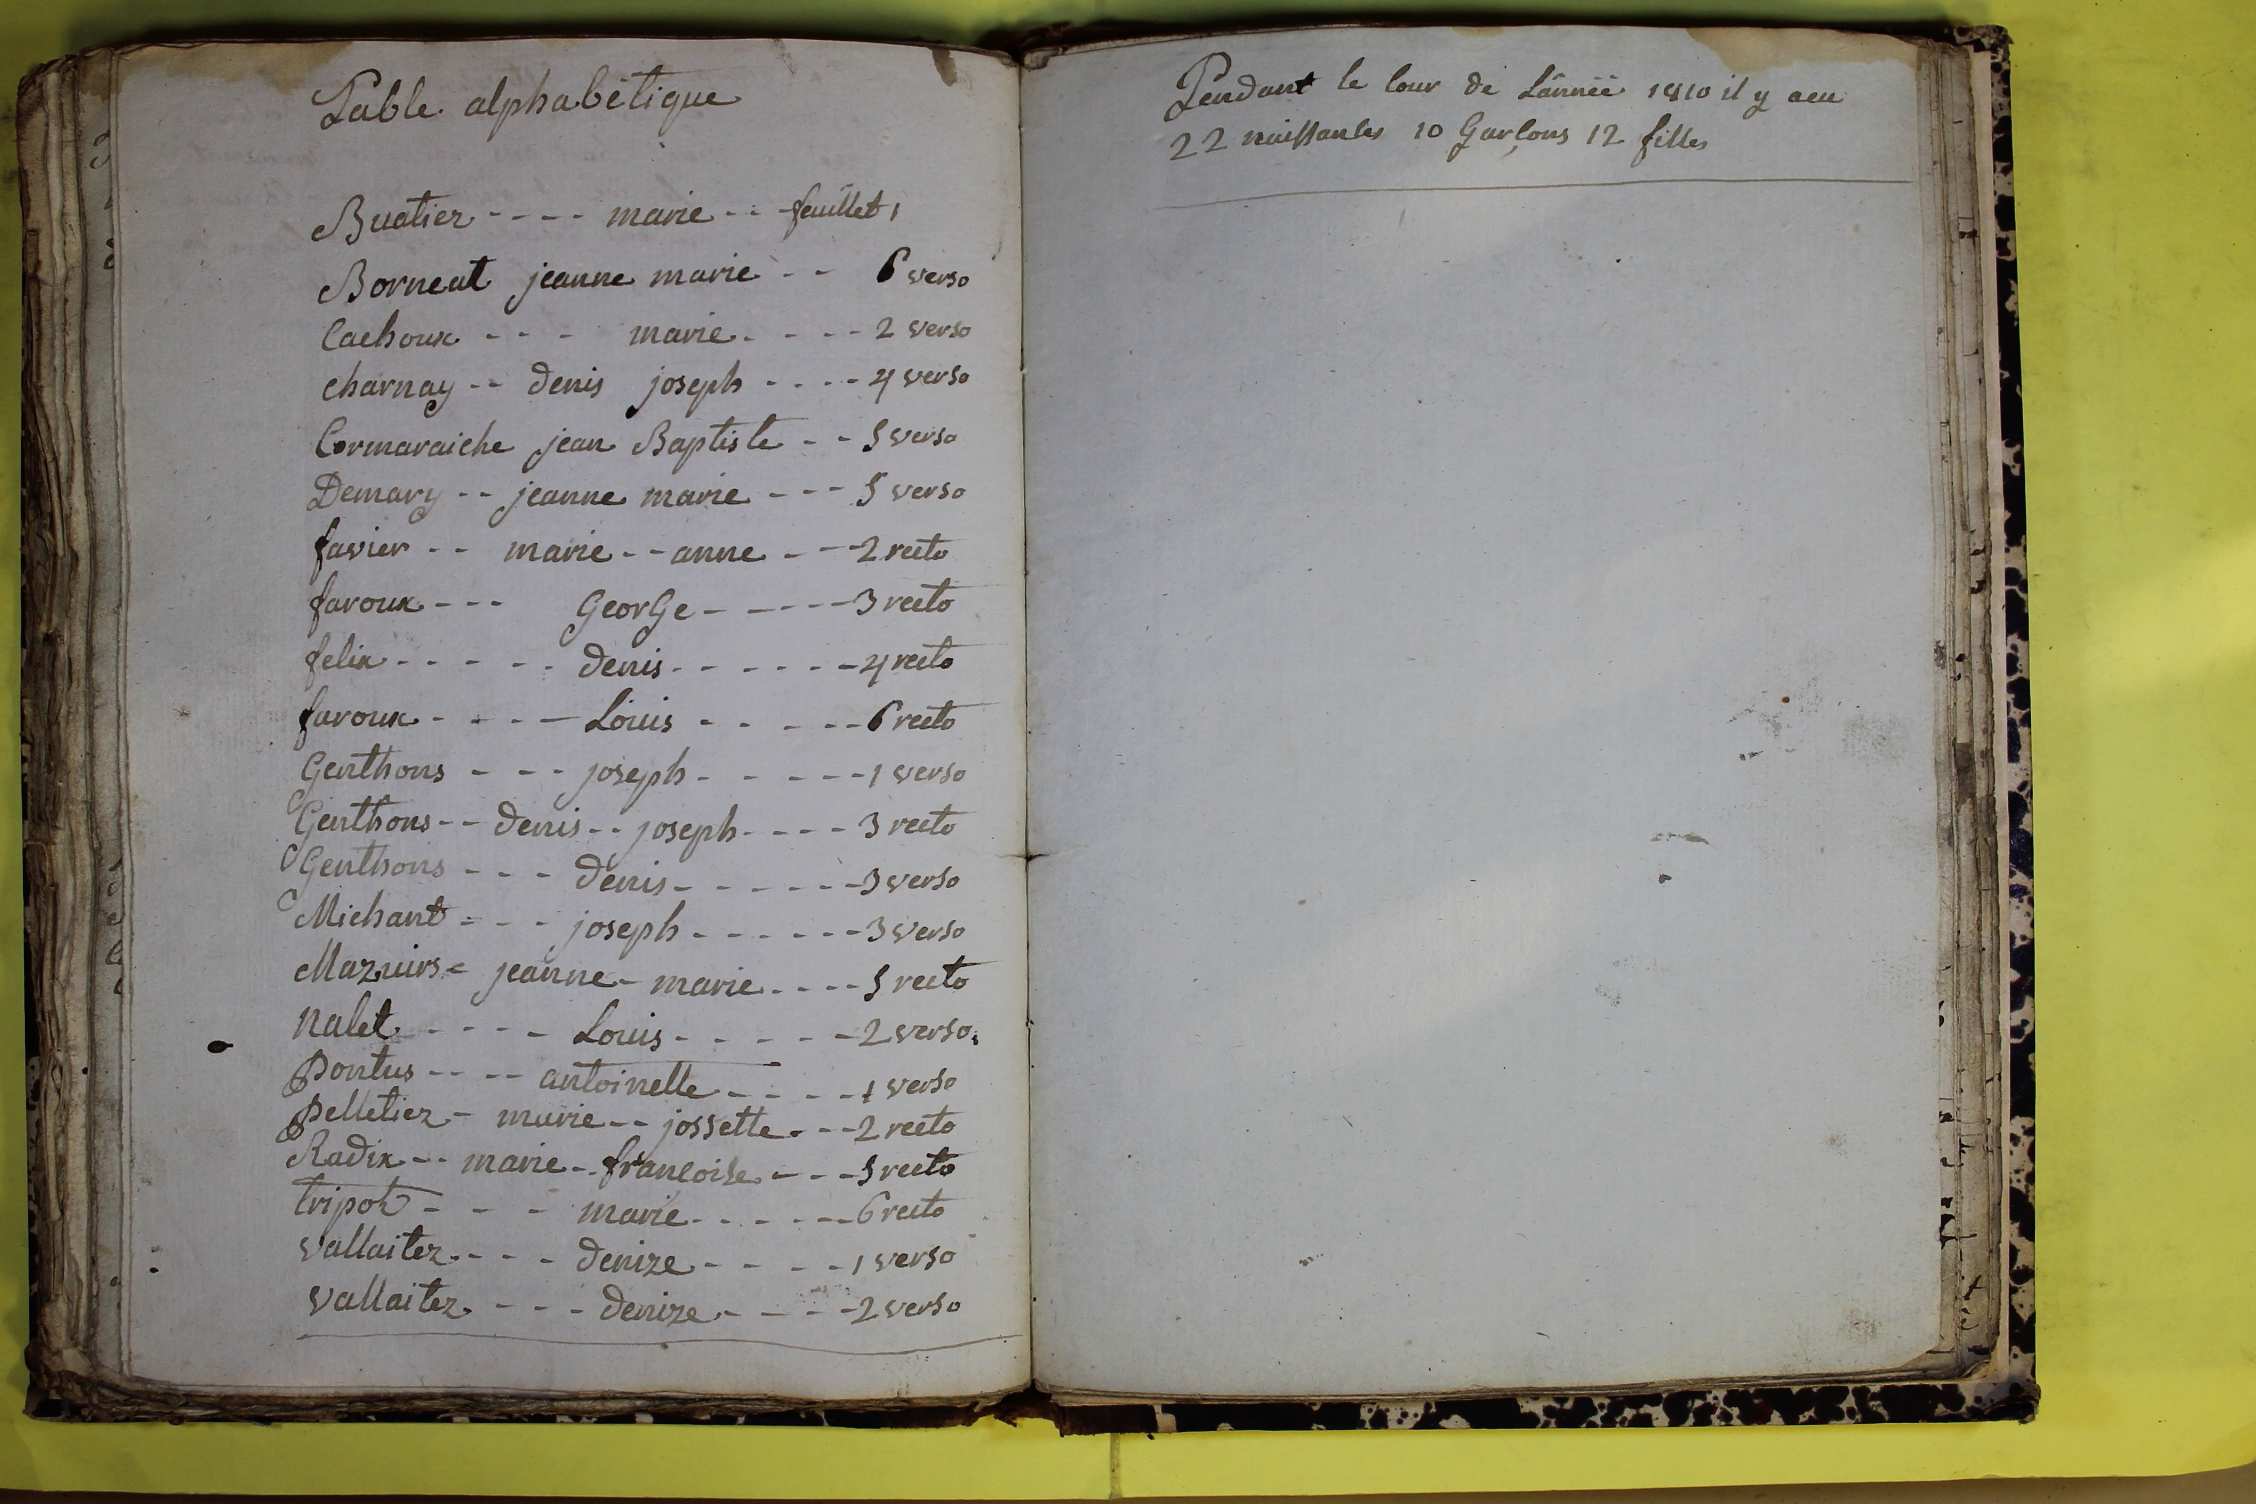 Table alphabétique
Buatier - - - - marie - - - feuillet 1
Borneat jeanne marie - - 6 verso
Cachoux - - - marie - - - - 2 verso
charnay - - denis joseph - - - - 4 verso
Cormaraiche jean Baptiste - - 5 verso
Demary - - jeanne marie - - - 5 verso
favier - - marie - - anne - - - 2 recto
faroux - - - GeorGe - - - - - 3 recto
felix - - - - - denis - - - - - - - 4 recto
faroux - - - - - Louis - - - - - 6 recto
Genthons - - - joseph - - - - - - 1 verso
Genthons - - denis - - joseph - - - - 3 recto
Genthons - - - denis - - - - - - - 3 verso
Michant - - - joseph - - - - - - 3 verso
Mazuirs - jeanne - marie - - - - 5 recto
nalet - - - - - Louis - - - - - - 2 verso
Pontus - - - - antoinette - - - - - 1 verso
Pelletier - marie - - jossette - - - 2 recto
Radix - - marie - francoise - - - 5 recto
tripot - - - marie - - - - - - 6 recto
vallaitez - - - - denize - - - - - 1 verso
vallaitez - - - - denize - - - - - 2 verso
Pendant le cour de Lânnéé 1810 il y aeu
22 naissances 10 Garçons 12 filles